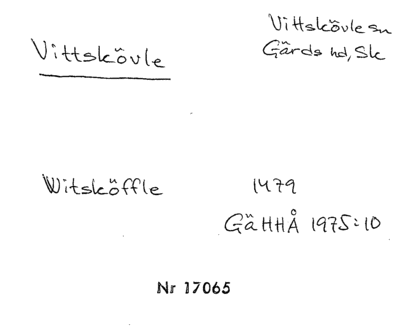 Vittskövle
Vittskövle sn
Gärds hd, Sk
Witsköffle 1479
GäHHÅ 1975:10
Nr 17065